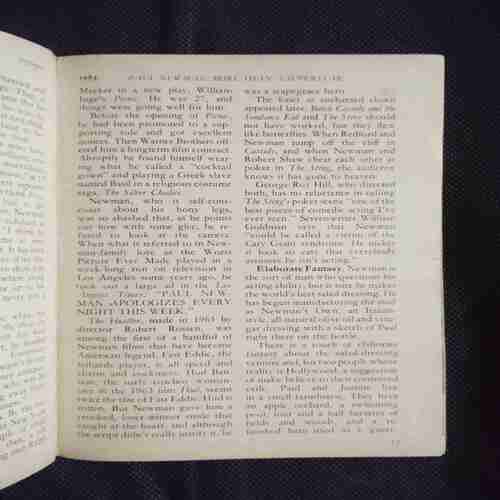 1984
PAUL NEWMAN: MORE THAN
Meeker in a new play, William
Inge's Picnic. He was 27, and
things were going well for him.
Before the opening of Picnic,
he had been promoted to a sup-
porting role and got excellent
notices. Then Warner Brothers off-
ered him a long-term film contract.
Abruptly he found himself wear-
ing what he called a "cocktail
gown" and playing a Greek slave
named Basil in a religious costume
epic, The Silver Chalice.
Newman, who is self-cons-
cious about his bony legs,
was so abashed that, as he points
out now with some glee, he re-
fused to look at the camera.
When what is referred to in New-
man-family lore as the Worst
Picture Ever Made played in a
week-long run on television in
Los Angeles some years ago, he
took out a large ad in the Los
Angeles Times: "PAUL NEW-
MAN APOLOGIZES EVERY
NIGHT THIS WEEK."
The Hustler, made in 1961 by
director Robert Rossen, was
among the first of a handful of
Newman films that have become
American legend. Fast Eddie, the
poolshark player, is all speed and
charm and cockiness. Hud Ban-
non, the surly cowboy woman-
izer in the 1963 film Hud, seems
twice the size of Fast Eddie. Hud is
rotten. But Newman gave him a
crooked, loser-winner smile that
caught at the heart, and although
the script didn't really justify it, he
was a scapegrace hero.
The foxes as enchanted clowns
appeared later. Butch Cassidy and the
Sundance Kid and The Sting should
not have worked, but they flew
like butterflies. When Redford and
Newman jump off the cliff in
Cassidy, and when Newman and
Robert Shaw cheat each other at
poker in The Sting, the audience
knows it has gone to heaven.
George Roy Hill, who directed
both, has no reluctance in calling
The Sting's poker scene "one of the
best pieces of comedic acting I've
ever seen." Screenwriter William
Goldman says that Newman
"could be called a victim of the
Cary Grant syndrome. He makes
it look so easy that everybody
assumes he isn't acting."
Elaborate Fantasy. Newman is
the sort of man who questions his
acting ability, but is sure he makes
the world's best salad dressing. He
has begun manufacturing the stuff
as Newman's Own, an Italian-
style, all natural olive oil and vine-
gar dressing with a sketch of Paul
right there on the bottle.
There is a touch of elaborate
fantasy about the salad-dressing
venture and, for two people whose
reality is Hollywood, a suggestion
of make-believe in their
exile. Paul and Joanne live
in a small farmhouse. They have
an apple orchard, a swimming
pool, four and a half hectares of
fields and woods, and a re-
finished barn used as a guest